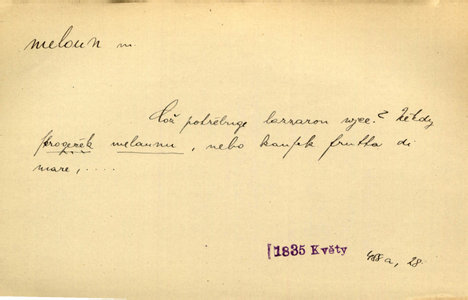 meloun m.
Což potřebuge lazzaron wjce? Někdy
kraygjček melaunu, nebo kausek frutta di
mare, . . . .
[1835 Květy
a, 28.